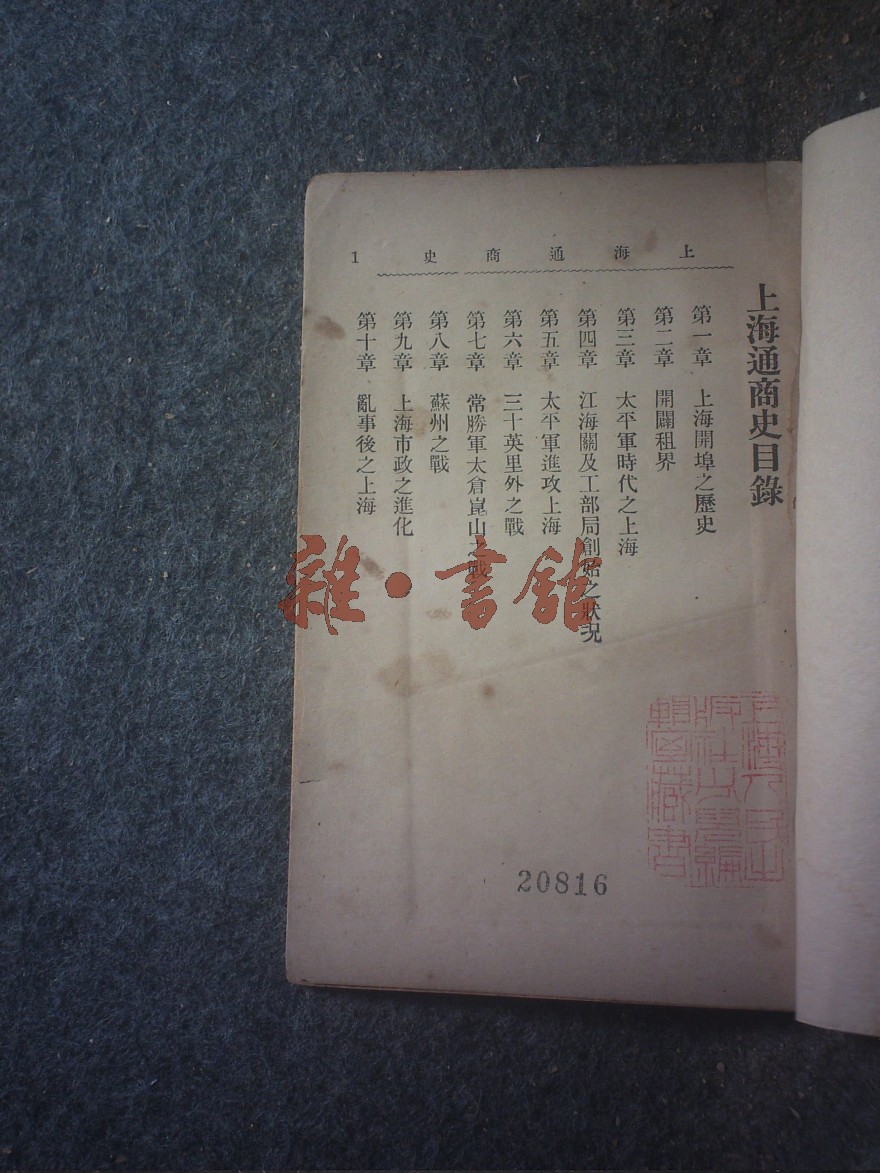 上海通商史
1
上海通商史目錄
第一章 上海開埠之歷史
第二章 開闢租界
第三章 太平軍時代之上海
第四章 江海關及工部局創始之狀況
第五章 太平軍進攻上海
第六章 三十英里外之戰
第七章 常勝軍太倉崑山之戰
第八章 蘇州之戰
第九章 上海市政之進化
第十章 亂事後之上海
雜·書館
20816